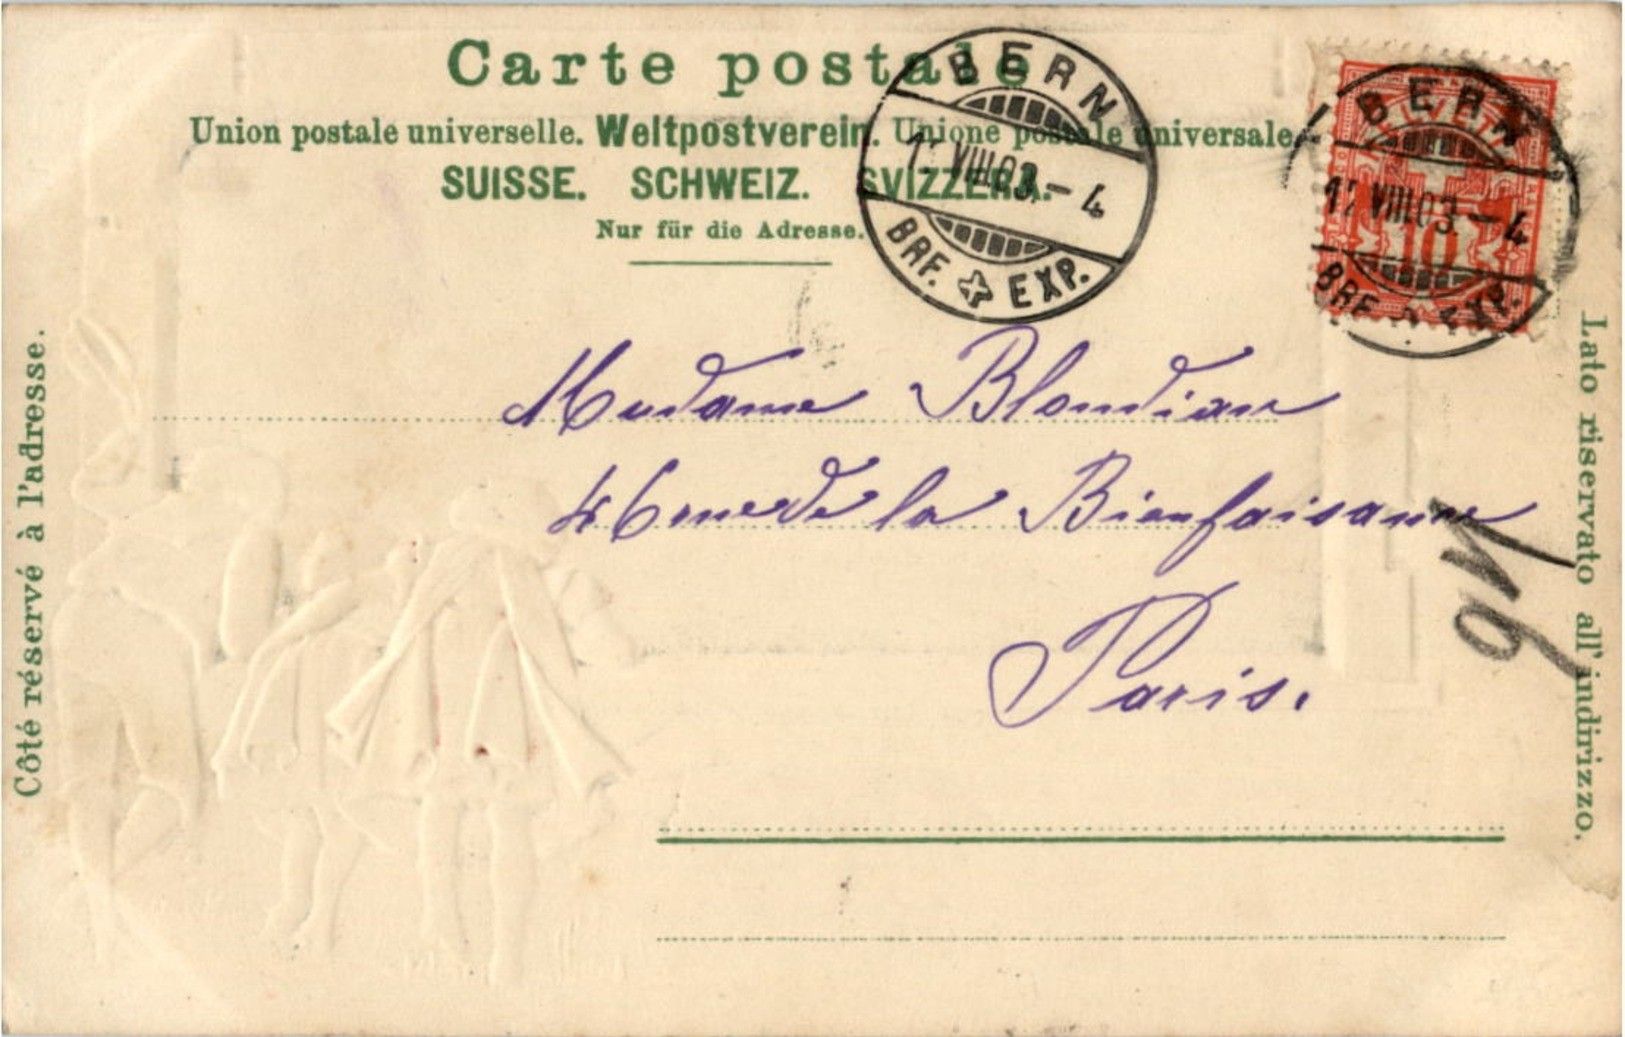 Carte postale
Union postale universelle. Weltpostverein. Unione postale universale.
SUISSE. SCHWEIZ. SVIZZERA.
Nur für die Adresse.
BERN
VIII.03. – 4
BRF. EXP.
BERN
12 VIII.03. – 4
BRF. EXP.
HELVETIA
10
Côté réservé à l'adresse.
Lato riservato all' indirizzo.
Madame
rue de la Bienfaisance
Paris.